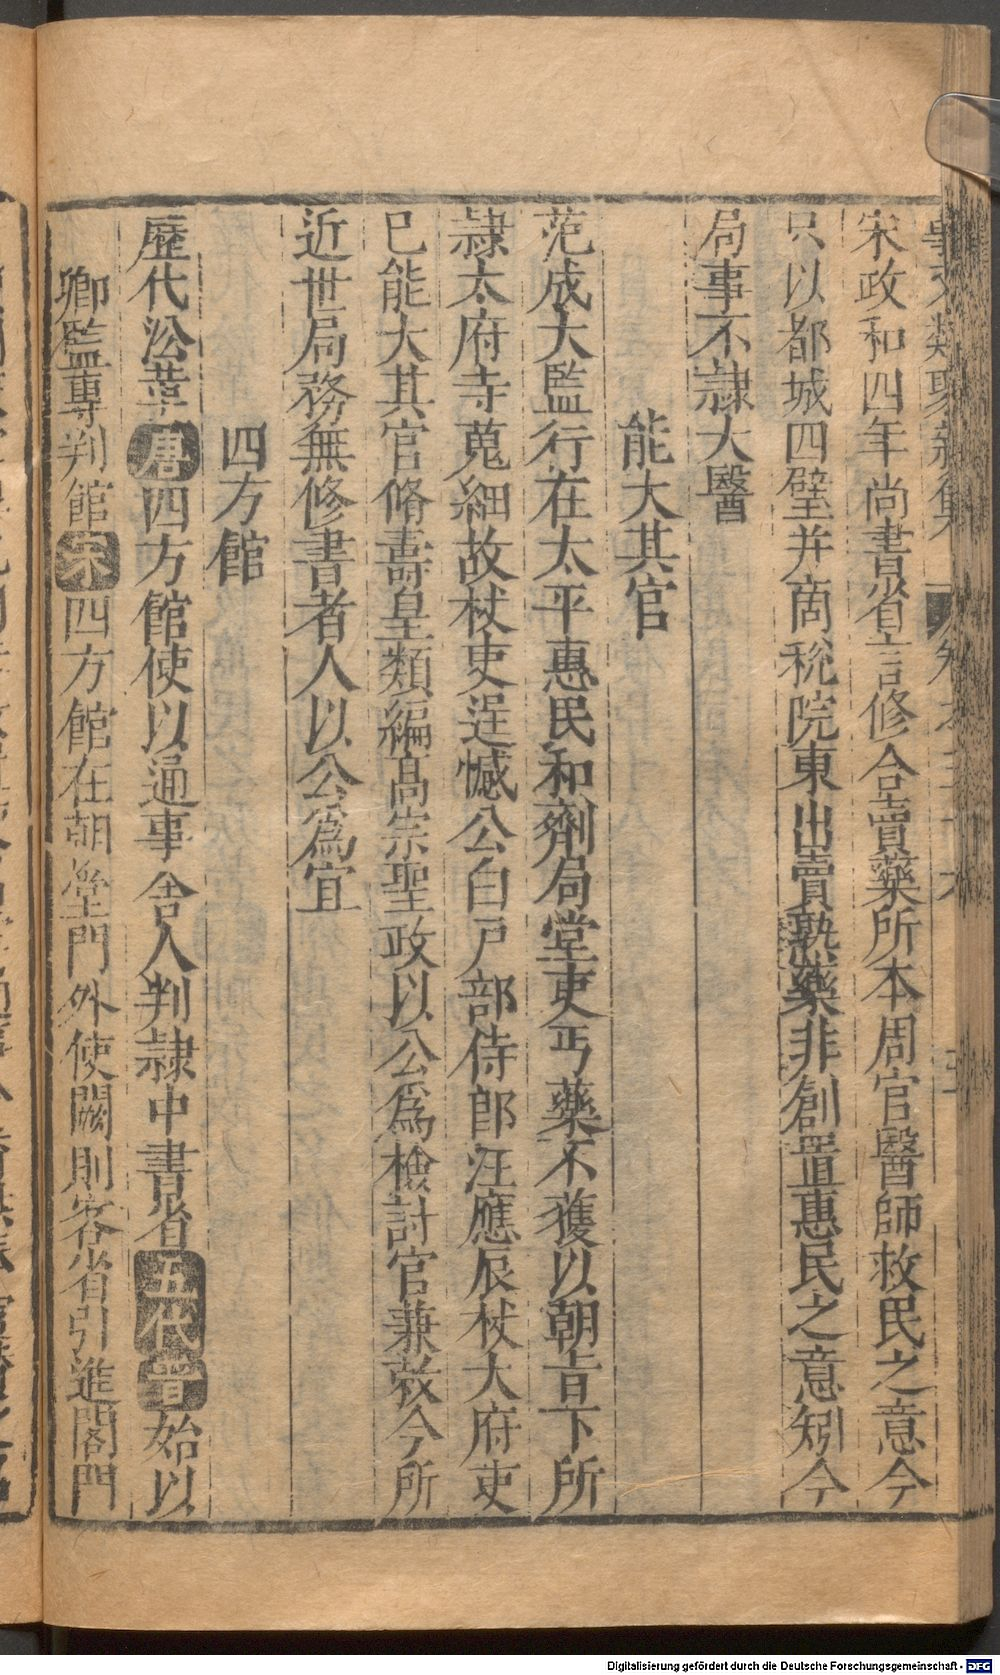 宋政和四年尚書省言修合賣藥所本周官醫師救民之意今
只以都城四壁并商稅院東出賣熟藥非創置惠民之意矧今
局事不隷大醫
能大其官
范成大監行在太平惠民和劑局堂吏丐藥不獲以朝㫖下所
隷太府寺蒐細故杖吏逞憾公白戸部侍郎汪應辰杖大府吏
已能大其官脩壽皇類編髙宗聖政以公爲檢討官兼敇令所
近世局務無修書者人以公爲宜
四方館
歷代㳂革唐四方館使以通事舍人判隷中書省五代晉始以
卿監專判館宋四方館在朝堂門外使闕則客省引進閤門
Digitalisierung gefördert durch die Deutsche Forschungsgemeinschaft - DFG